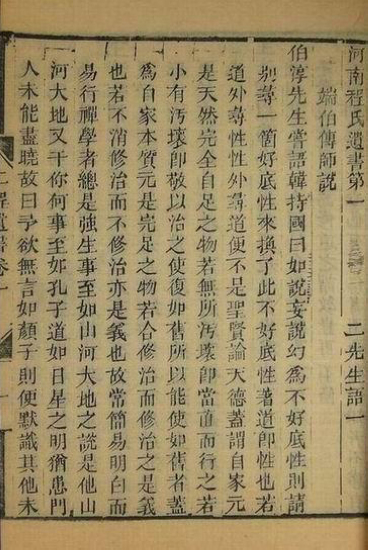 河南程氏遺書第一　二先生語一
端伯傳師說
伯淳先生嘗語韓持國曰如說妄說幻為不好底性則請
別尋一箇好底性來換了此不好底性著道即性也若
道外尋性性外尋道便不是聖賢論天德蓋謂自家元
是天然完全自足之物若無所汚壞即當直而行之若
小有汚壞即敬以治之使復如舊所以能使如舊者蓋
為自家本質元是完足之物若合修治而修治之是義
也若不消修治而不修治亦是義也故常簡易明白而
易行禪學者總是強生事至如山河大地之說是他山
河大地又干你何事至如孔子道如日星之明猶患門
人未能盡曉故曰予欲無言如顏子則便默識其他未